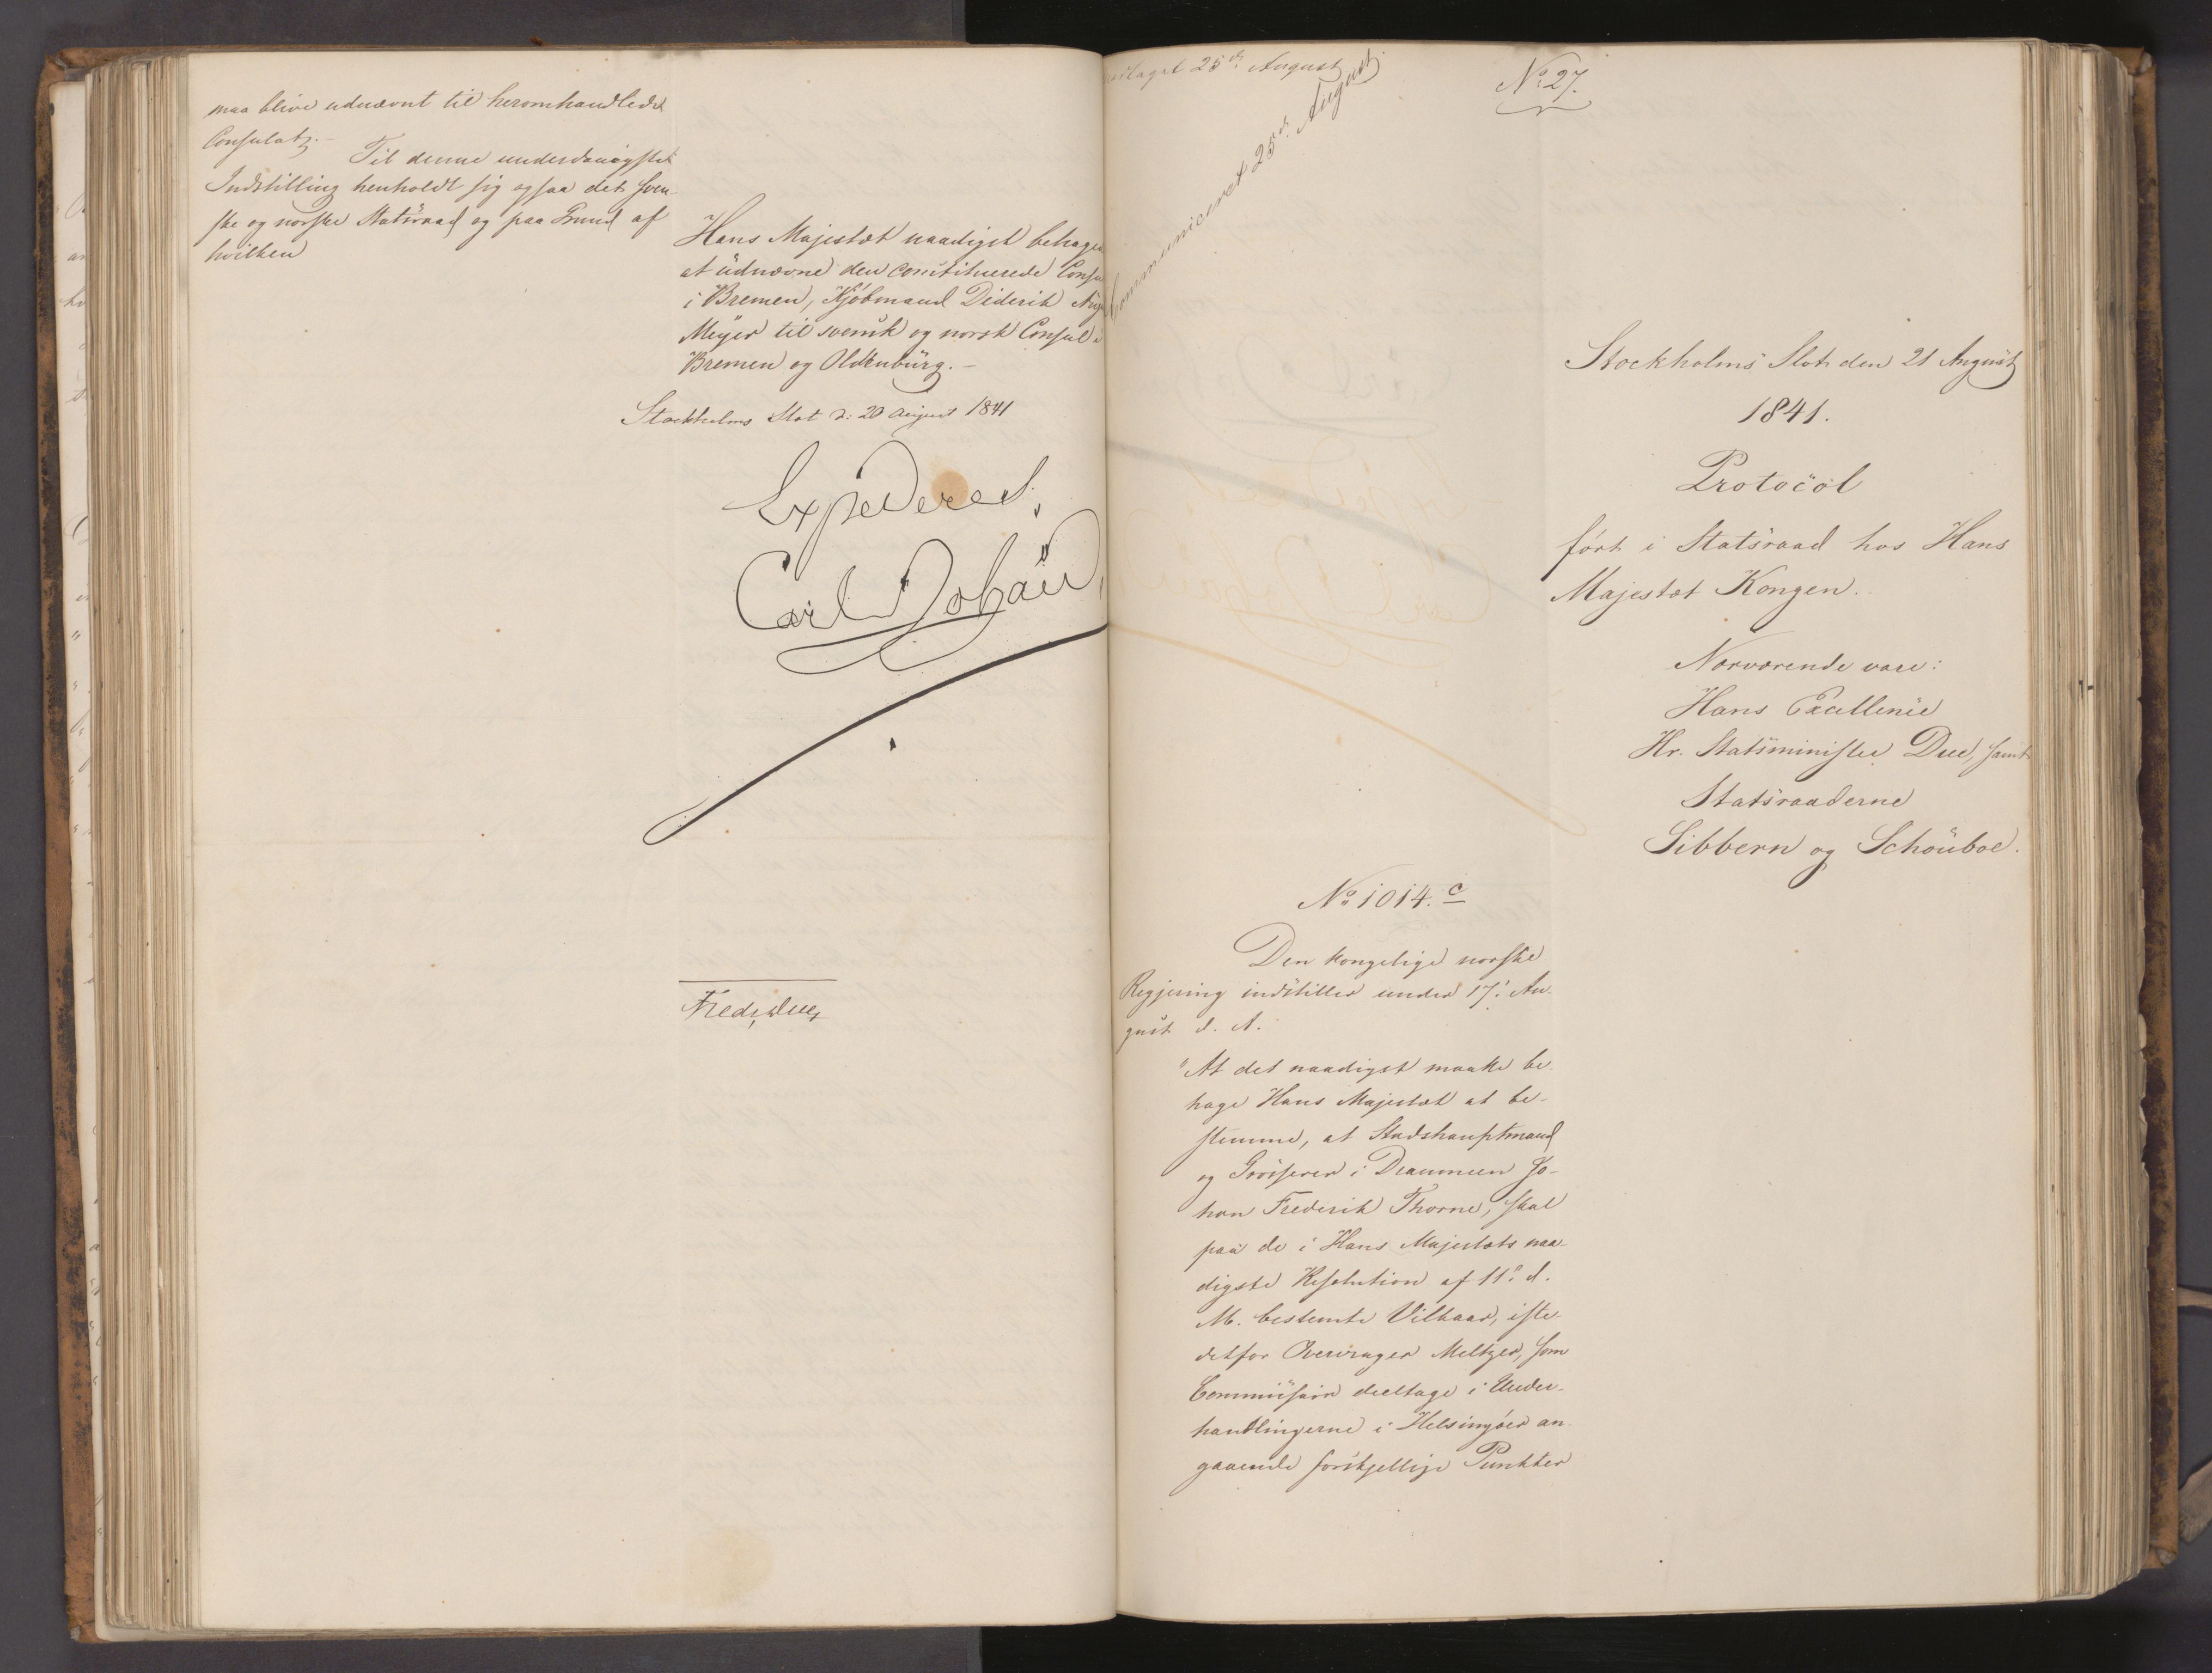 maa blive udnævnt til heromhandlede
Consulat. –
Til denne underdanigste
Indstilling henholdt sig ogsaa det sven-
ske og norske Statsraad og paa Grund af
hvilken
Hans Majestæt naadigst behage
at udnævne den constituerede Consu
i Bremen, Kjøbmand Diderik Aug
Meyer til svensk og norsk Consul i
Bremen og Oldenburg. –
Stockholms Slot d: 20 August 1841
Expederes.
Carl Johan
Fredr. Due
25de August
Communiceret 25de August
No 27.
Stockholms Slot den 21 August
1841.
Protocol
ført i Statsraad hos Hans
Majestæt Kongen.
Nærværende vare:
Hans Excellence
Hr. Statsminister Due, samt
Statsraaderne
Sibbern og Schouboe.
No 1014. c
Den kongelige norske
Regjering indstiller under 17. Au-
gust d. A.
"At det naadigst maatte be-
hage Hans Majestæt at be-
stemme, at Stadshauptmand
og Grosserer i Drammen Jo-
han Frederik Thorne, skal
paa de i Hans Majestæts naa-
digste Resolution af 11. d.
M. bestemte Vilkaar, iste-
detfor Overvrager Meltzer, som
Commissair deeltage i Under-
handlingerne i Helsingøer an-
gaaende forskjellige Punkter